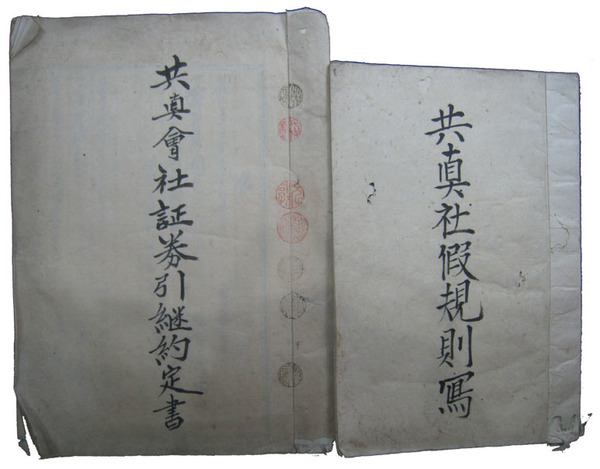 共真會社証券引継約定書
共真社假規則寫